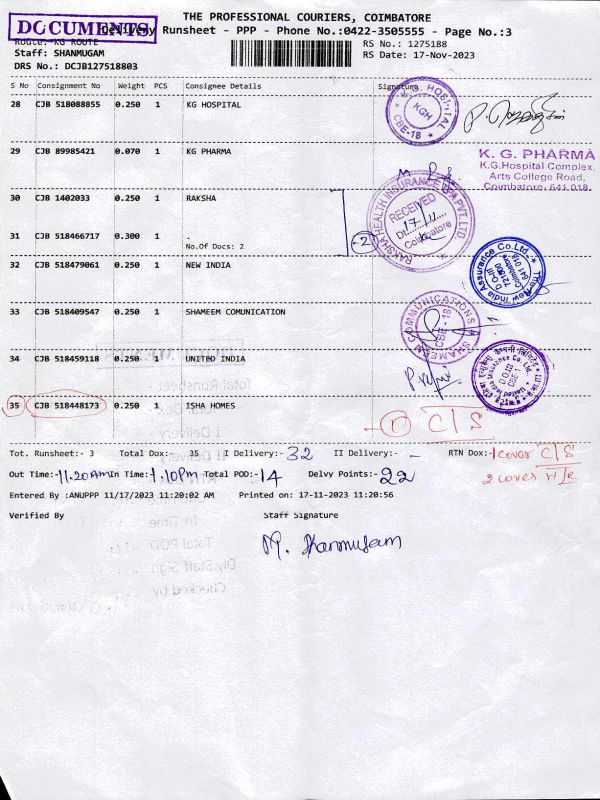 THE PROFESSIONAL COURIERS, COIMBATORE
DOCUMENTS
Delivery Runsheet - PPP - Phone No.:0422-3505555 - Page No.:3
Route: KG ROUTE
RS No.: 1275188
Staff: SHANMUGAM
RS Date: 17-Nov-2023
DRS No.: DCJB127518803
S No Consignment No Weight PCS Consignee Details Signature
28 CJB 518088855 0.250 1 KG HOSPITAL
K.G. HOSPITAL
KGH
CBE-18
29 CJB 89985421 0.070 1 KG PHARMA
K. G. PHARMA
K.G.Hospital Complex,
Arts College Road,
Coimbatore- 641 018.
30 CJB 1402033 0.250 1 RAKSHA
RAKSHA HEALTH INSURANCE TPA PVT. LTD
RECEIVED
Dt. 17/11
Coimbatore
31 CJB 518466717 0.300 1 .
No.Of Docs: 2
2
32 CJB 518479061 0.250 1 NEW INDIA
The New India Assurance Co.Ltd.
D.O.-II
721800
Coimbatore
641 018
33 CJB 518409547 0.250 1 SHAMEEM COMUNICATION
SHAMEEM COMMUNICATIONS
CBE-18
34 CJB 518459118 0.250 1 UNITBO INDIA
35 CJB 518448173 0.250 1 ISHA HOMES
① C/S
Tot. Runsheet:- 3 Total Dox: 35 I Delivery:- 32 II Delivery:- - RTN Dox:- 1 cover C/S
2 cover
Out Time:- 11.20AM In Time: 7.10PM Total POD:- 14 Delvy Points:- 22
Entered By :ANUPPP 11/17/2023 11:20:02 AM Printed on: 17-11-2023 11:20:56
Verified By Staff Signature
M. Shanmugam